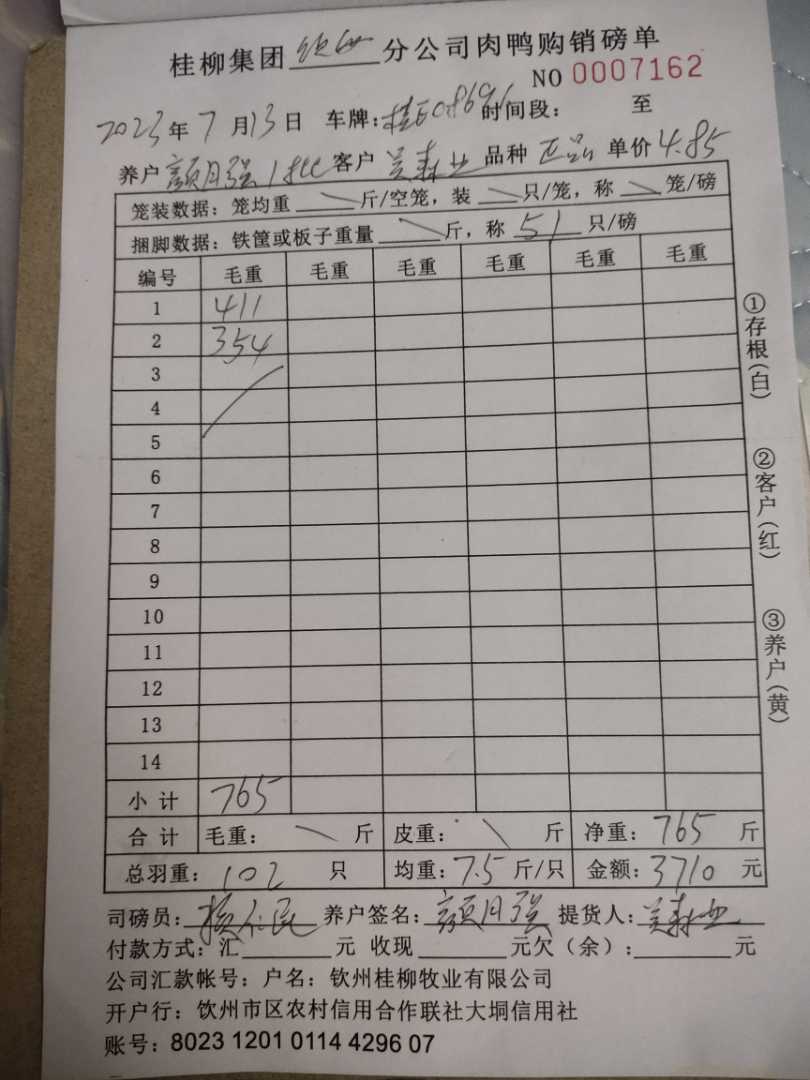 桂柳集团 钦州 分公司肉鸭购销磅单
NO 0007162
2023年7月13日 车牌: 时间段: 至
养户 颜月强 客户 吴森业 品种 正品 单价 4.85
笼装数据: 笼均重 \ 斤/空笼, 装 \ 只/笼, 称 \ 笼/磅
捆脚数据: 铁筐或板子重量 \ 斤, 称 51 只/磅
编号 毛重 毛重 毛重 毛重 毛重 毛重
1 411
2 354
3
4
5
6
7
8
9
10
11
12
13
14
小计 765
合计 毛重: \ 斤 皮重: \ 斤 净重: 765 斤
总羽重: 102 只 均重: 7.5 斤/只 金额: 3710 元
司磅员: 养户签名: 颜月强 提货人: 吴森业
付款方式: 汇 元 收现 元欠(余): 元
公司汇款帐号: 户名: 钦州桂柳牧业有限公司
开户行: 钦州市区农村信用合作联社大垌信用社
账号: 8023 1201 0114 4296 07
①存根(白)
②客户(红)
③养户(黄)